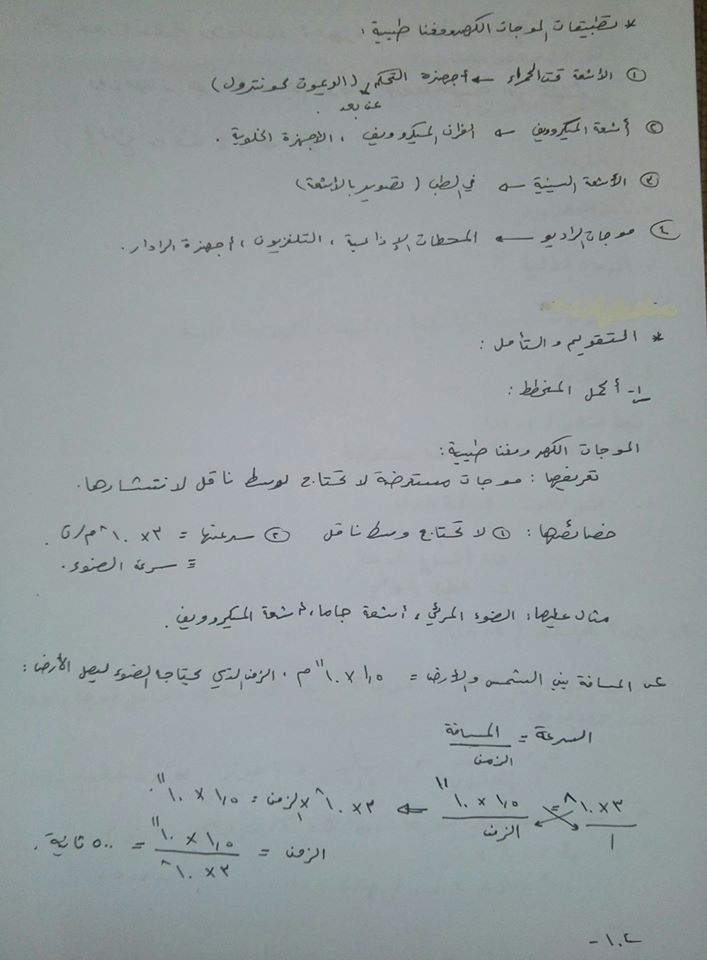 * تطبيقات الموجات الكهرومغناطيسية :
① الأشعة تحت الحمراء ← أجهزة التحكم (الريموت كونترول)
عن بعد .
② أشعة الميكروويف ← أفران الميكروويف ، الأجهزة الخلوية .
③ الأشعة السينية ← في الطب (تصوير بالأشعة)
④ موجات الراديو ← المحطات الإذاعية ، التلفزيون ، أجهزة الرادار .
* التقويم والتأمل :
١- أكمل المخطط :
الموجات الكهرومغناطيسية :
تعريفها : موجات مستعرضة لا تحتاج لوسط ناقل لانتشارها .
خصائصها : ① لا تحتاج وسط ناقل ② سرعتها = ٣ × ١٠^٨ م/ث .
= سرعة الضوء .
مثال عليها : الضوء المرئي ، أشعة جاما ، أشعة الميكروويف .
المسافة بين الشمس والأرض = ١,٥ × ١٠^١١ م . الزمن الذي يحتاجه الضوء ليصل الأرض :
السرعة = المسافة / الزمن
٣ × ١٠^٨ / ١ = ١,٥ × ١٠^١١ / الزمن ← ٣ × ١٠^٨ × الزمن = ١,٥ × ١٠^١١ .
الزمن = ١,٥ × ١٠^١١ / ٣ × ١٠^٨ = ٥٠٠ ثانية .